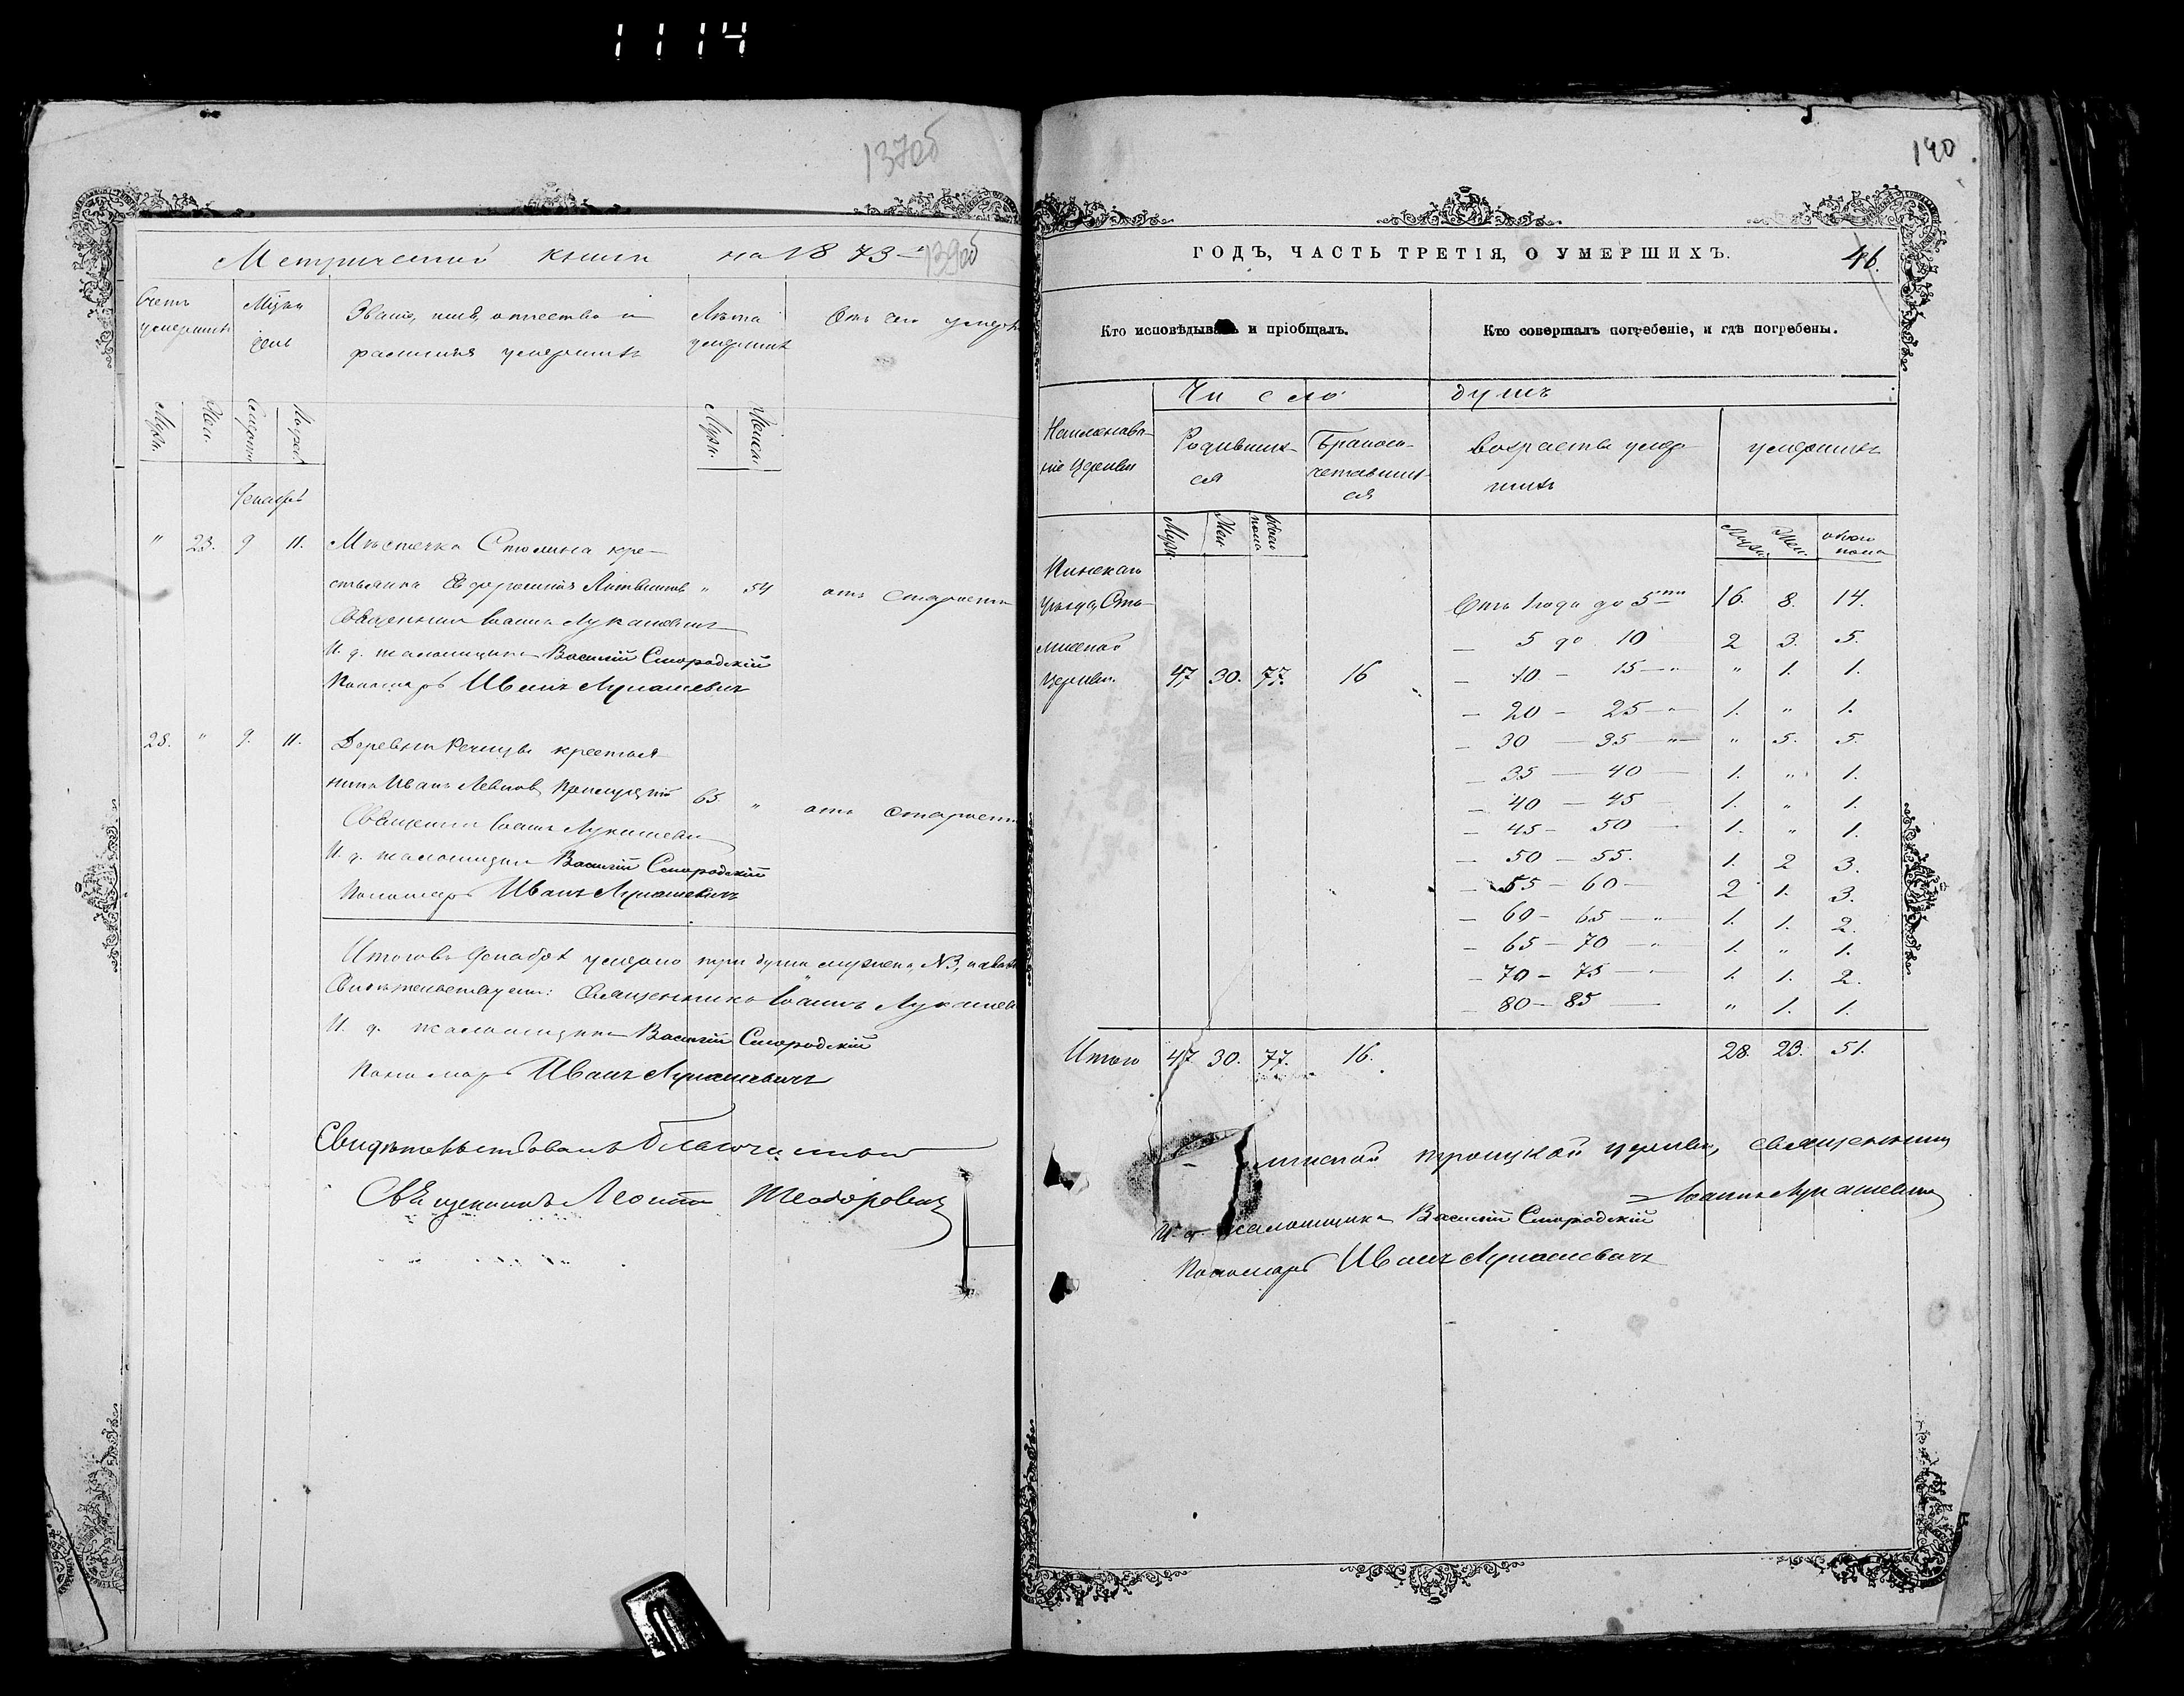 1114
137об
Метрической книги на 1873 139об
Счетъ умершихъ
Мѣсяц день
Званіе, имя, отчество и фамилія умершихъ
Лѣта умершихъ
Отъ чего умеръ
Муж.
Жен.
Смерти
Погреб
Муж.
Женск.
Декабрь
" 23. 9 11. Мѣстечка Столина кре-
стьянка Евфросинія Литвинов " 54 отъ старости
Священникъ Іоаннъ Лукашевичъ
И. д. псаломщика Василій Смородскій
Пономарь Иванъ Лукашевичъ
28. " 9. 11. Деревни Речицы крестья
нинъ Иванъ Левков 65 " отъ старости
Священникъ Іоаннъ Лукашевичъ
И. д. псаломщика Василій Смородскій
Пономарь Иванъ Лукашевичъ
Итого въ Декабрѣ умерло три души мужеска №3,
Свидѣтельствуемъ: Священникъ Іоаннъ Лукашев
И. д. псаломщика Василій Смородскій
Пономарь Иванъ Лукашевичъ
Свидѣтельствовалъ благочинный
Священникъ Теодоровичъ
140
ГОДЪ, ЧАСТЬ ТРЕТІЯ, О УМЕРШИХЪ.
46.
Кто исповѣдывалъ и пріобщалъ.
Кто совершалъ погребеніе, и гдѣ погребены.
Число душъ
Наименова-
ніе церкви
Родивших-
ся
Бракосо-
четавших-
ся
возрастъ умер-
шихъ
умершихъ
Муж.
Жен
обоего пола
Муж.
Жен.
обоего пола
Пинскаго
уѣзда Сто-
линской
церкви. 47 30. 77. 16
Отъ 1 года до 5ти 16. 8. 14.
— 5 до 10 2 3. 5.
— 10 — 15 — " 1. 1.
— 20 — 25 — 1. " 1.
— 30 — 35 — " 5. 5.
— 35 — 40 — 1. " 1.
— 40 — 45 1. " 1.
— 45 — 50 1. " 1.
— 50 — 55. 1. 2 3.
— 55 — 60 — 2 1. 3.
— 60 — 65 — 1. 1. 2.
— 65 — 70 — 1. " 1.
— 70 — 75 — 1. 1. 2.
— 80 — 85 — " 1. 1.
Итого 47 30. 77. 16. 28. 23. 51.
линской троицкой церкви, священникъ
Іоаннъ Лукашевичъ
И. д. псаломщика Василій Смородскій
Пономарь Иванъ Лукашевичъ